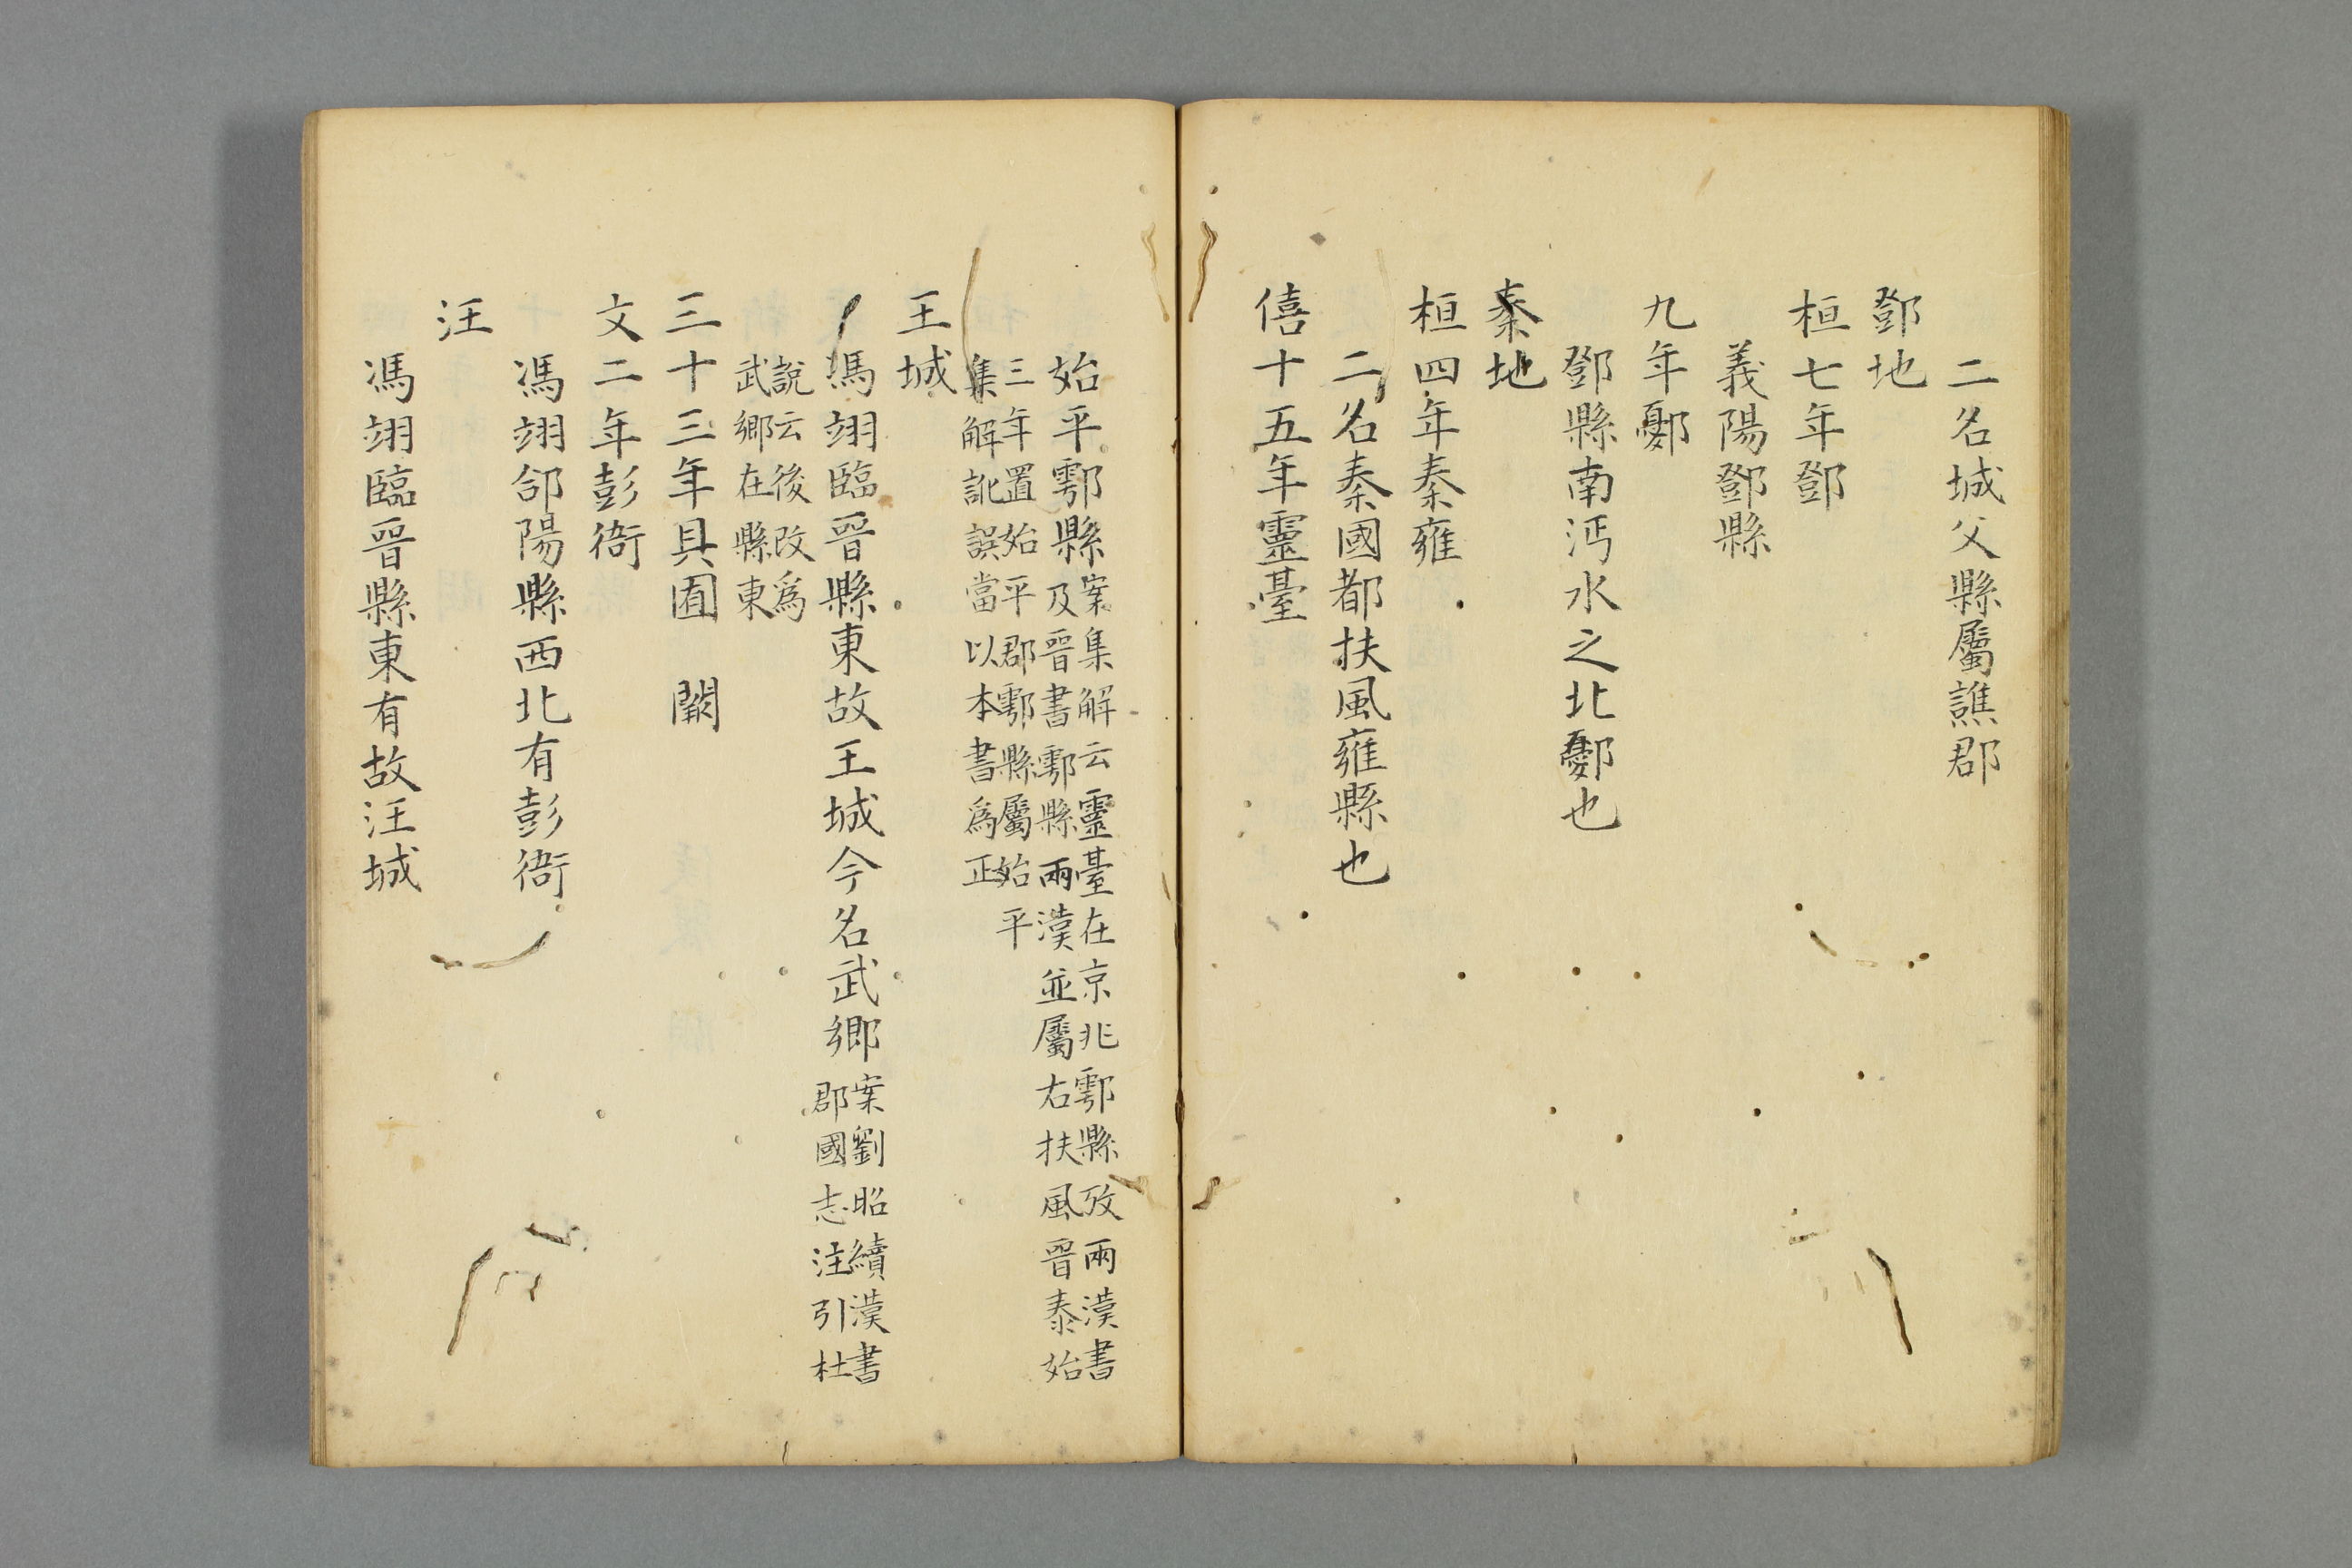 二名城父縣屬譙郡
鄧地
桓七年鄧
義陽鄧縣
九年鄾
鄧縣南沔水之北鄾也
秦地
桓四年秦雍
二名秦國都扶風雍縣也
僖十五年靈臺
始平鄠縣
案集解云靈臺在京兆鄠縣攷兩漢書
及晉書鄠縣兩漢並屬右扶風晉泰始
三年置始平郡鄠縣屬始平
集解訛誤當以本書爲正
王城
馮翊臨晉縣東故王城今名武鄉
案劉昭續漢書
郡國志注引杜
說云後改爲
武鄉在縣東
三十三年具囿 闕
文二年彭衙
馮翊郃陽縣西北有彭衙
汪
馮翊臨晉縣東有故汪城